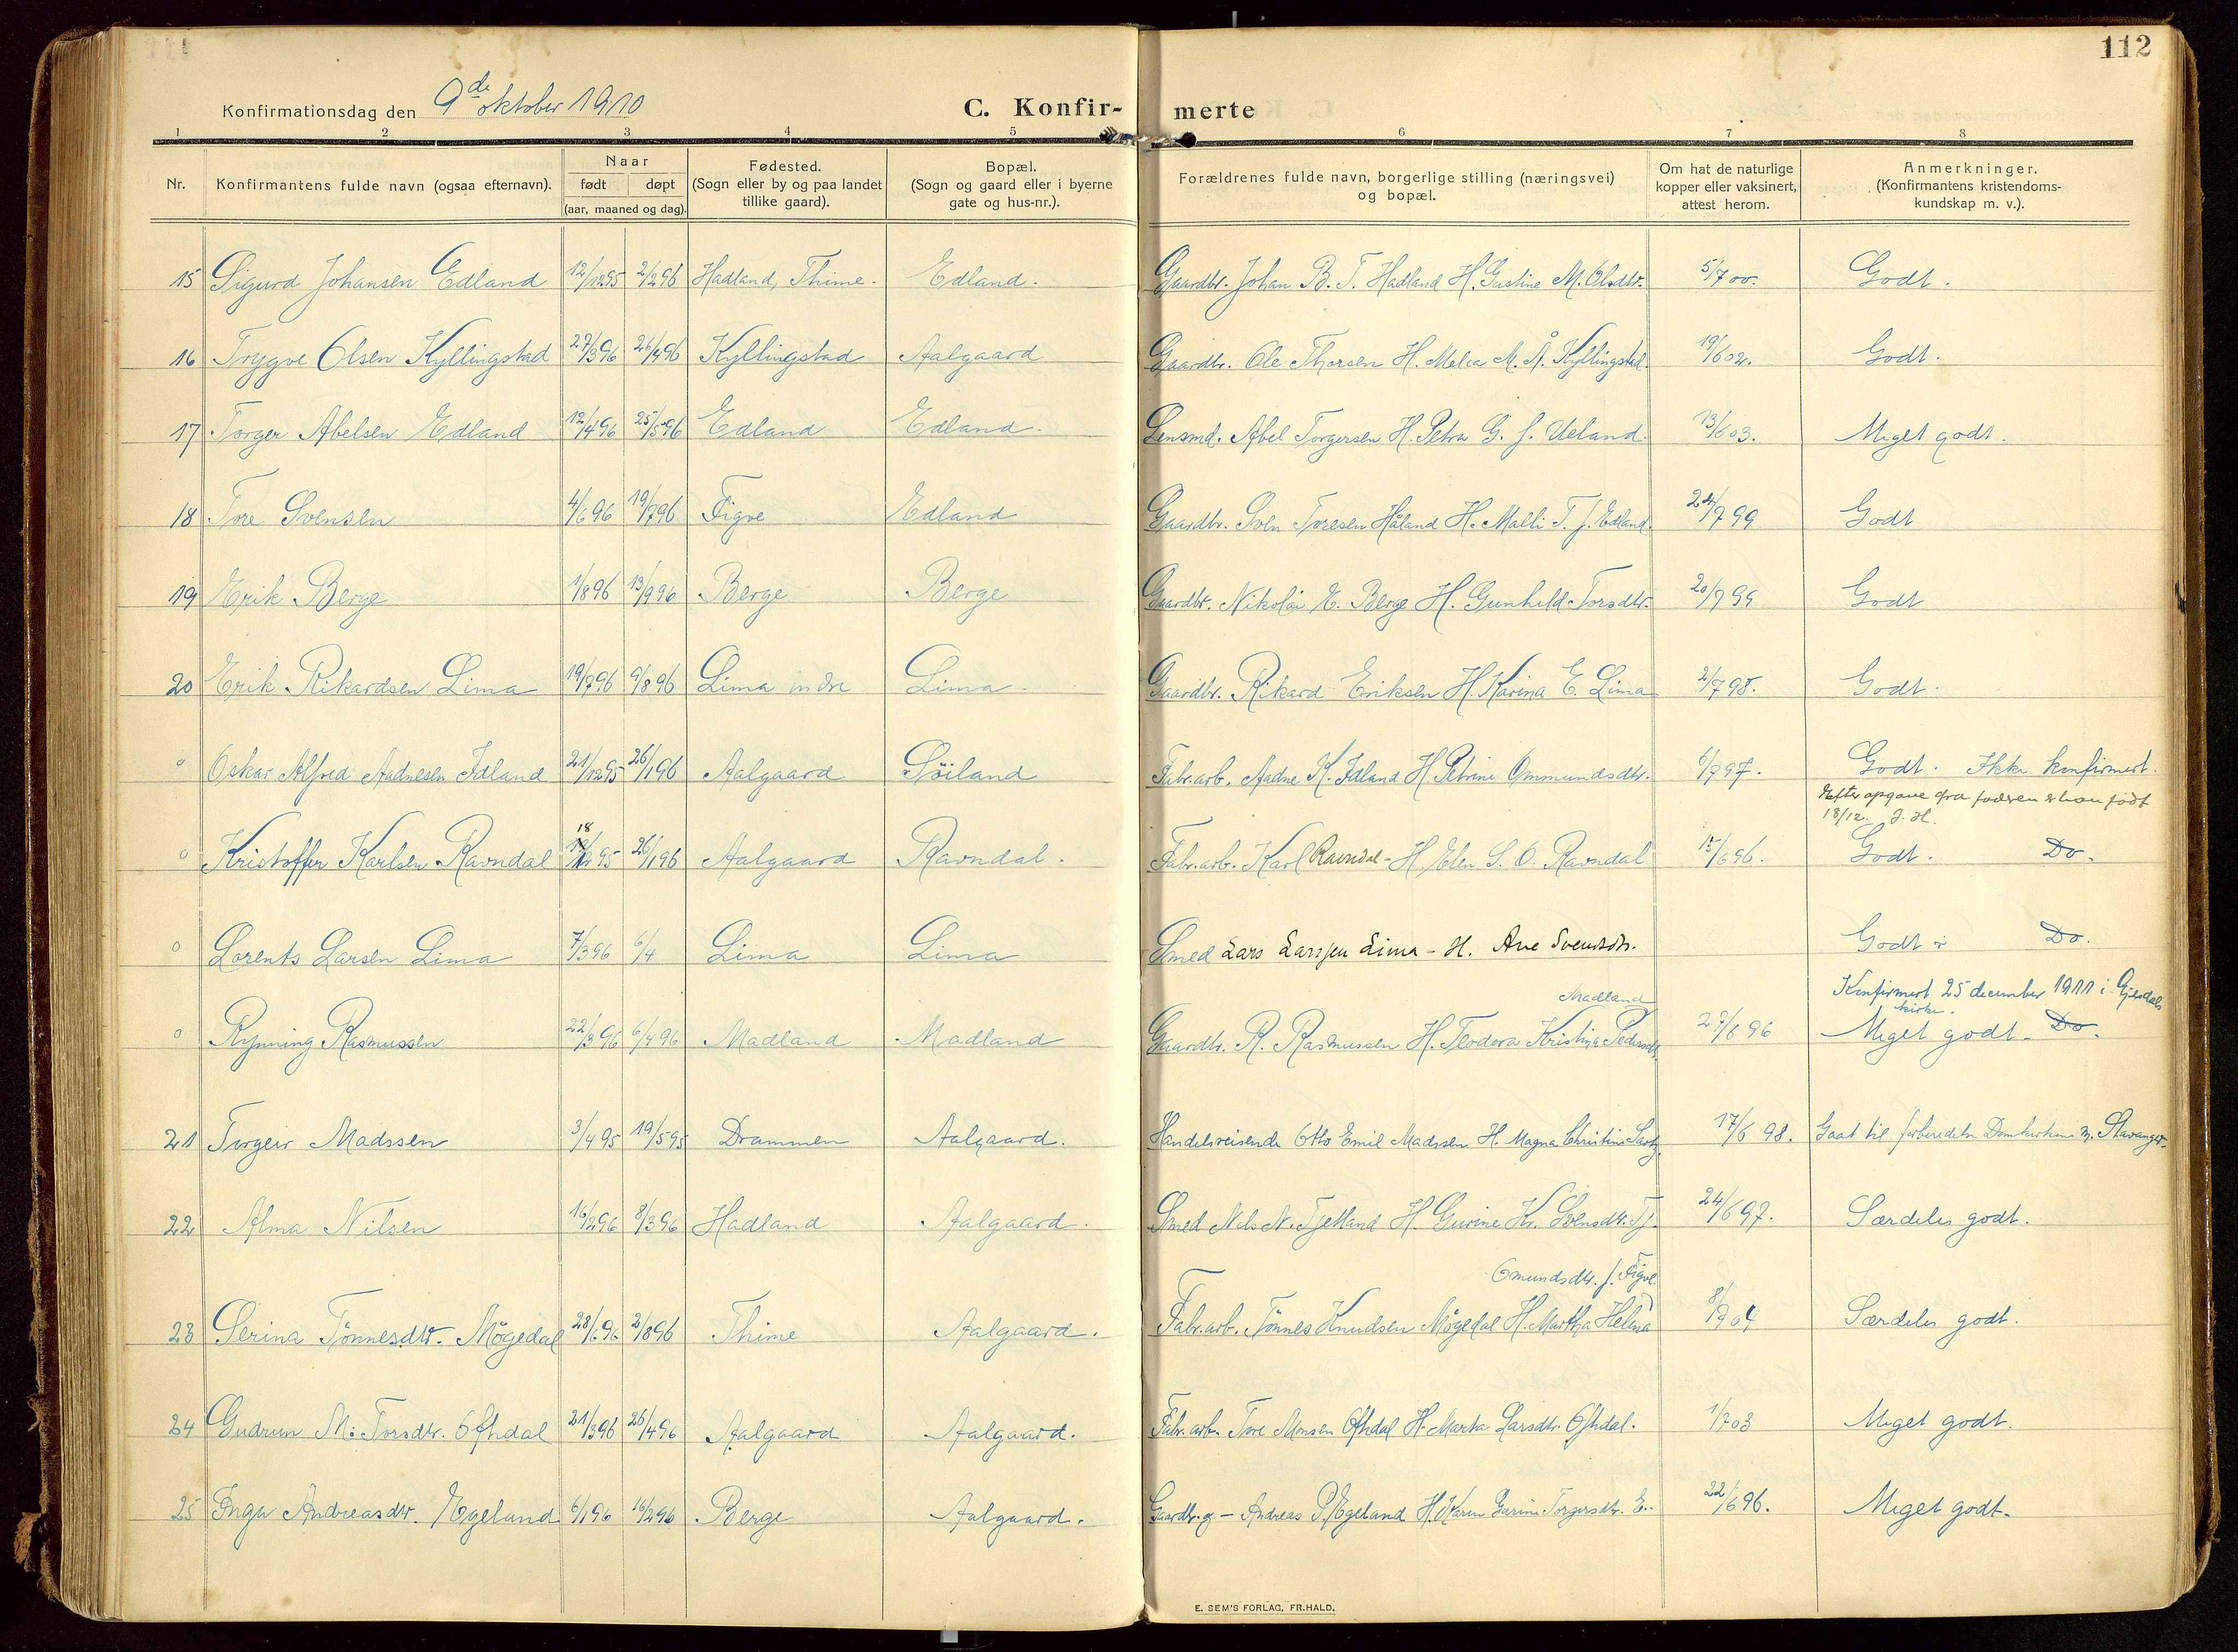 112
Konfirmationsdag den 9de oktober 1910
C. Konfir-merte
1 2 3 4 5 6 7 8
Nr. Konfirmantens fulde navn (ogsaa efternavn). Naar født døpt (aar, maaned og dag). Fødested. (Sogn eller by og paa landet tillike gaard). Bopæl. (Sogn og gaard eller i byerne gate og hus-nr.). Forældrenes fulde navn, borgerlige stilling (næringsvei) og bopæl. Om hat de naturlige kopper eller vaksinert, attest herom. Anmerkninger. (Konfirmantens kristendoms-kundskap m. v.).
15 Sigurd Johansen Edland 12/12 95 2/2 96 Hadland, Thime. Edland. Gaardbr. Johan B. T. Hadland H. Gustine M. Olsdtr. 5/7 00. Godt.
16 Trygve Olsen Kyllingstad 27/3 96 26/4 96 Kyllingstad Aalgaard Gaardbr. Ole Thorsen H. Melea M. Å. Kyllingstad. 19/6 02. Godt.
17 Torger Abelsen Edland 12/4 96 25/5 96 Edland Edland. Lensmd. Abel Torgersen H. Petra G. f. Ueland. 13/6 03. Meget godt.
18 Tore Svensen 4/6 96 19/7 96 Figve Edland Gaardbr. Sven Toresen Håland H. Malli T. f. Edland. 24/7 99 Godt
19 Erik Berge 1/8 96 13/9 96 Berge Berge Gaardbr. Nikolai E. Berge H. Gunhild Torsdtr. 20/7 99 Godt
20 Erik Rikardsen Lima 19/7 96 9/8 96 Lima indre Lima. Gaardbr. Rikard Eriksen H. Karina E. Lima 2/7 98. Godt.
o Oskar Alfred Aadnesen Idland 21/12 95 26/1 96 Aalgaard Søiland Fabr.arb. Aadne K. Idland H. Petrine Ommundsdtr. 6/7 97. Godt. Ikke konfirmert.
Efter opgave fra faderen er han født
18/12. J. H.
18
o Kristoffer Karlsen Ravndal 95 26/1 96 Aalgaard Ravndal. Fabr.arb. Karl Ravndal - H. Elen S. O. Ravndal 15/6 96. Godt. Do.
o Lorents Larsen Lima 7/3 96 6/4 Lima Lima Smed Lars Larssen Lima - H. Ane Svendsdtr. Godt Do.
Madland Konfirmert 25 december 1911 i Gjesdals kirke.
o Rynning Rasmussen 22/3 96 6/4 96 Madland Madland Gaardbr. R. Rasmussen H. Teodora Kristina Pedersdt. 27/6 96 Meget godt. Do.
21 Torgeir Madssen 3/4 95 19/5 95 Drammen Aalgaard. Handelsreisende Otto Emil Madssen H. Magna Christine 17/6 98. Gaat til forberedelse Domkirkens m. Stavanger.
22 Alma Nilsen 16/2 96 8/3 96 Hadland Aalgaard. Smed Nils N. Tjetland H. Gurine Kr. Svensdtr. Tj. 24/6 97. Særdeles godt.
Omundsdtr. f. Figve.
23 Serina Tønnesdtr. Møgedal 28/6 96 2/8 96 Thime Aalgaard. Fabr.arb. Tønnes Knudsen Møgedal H. Martha Helena 8/7 04 Særdeles godt.
24 Gudrun M. Torsdtr. Ofthdal 21/3 96 26/4 96 Aalgaard Aalgaard. Fabr.arb. Tore Monsen Ofthdal H. Marta Larsdtr. Ofthdal. 1/7 03 Meget godt.
25 Inga Andreasdtr. Egeland 6/1 96 16/2 96 Berge Aalgaard. Gaardbr. Andreas P. Egeland H. Karen Gurine Torgersdtr. E. 22/6 96. Meget godt.
E. SEM'S FORLAG, FR.HALD.